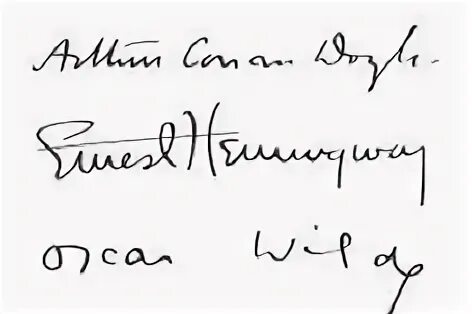 Arthur Conan Doyle.
Ernest Hemingway
Oscar Wilde